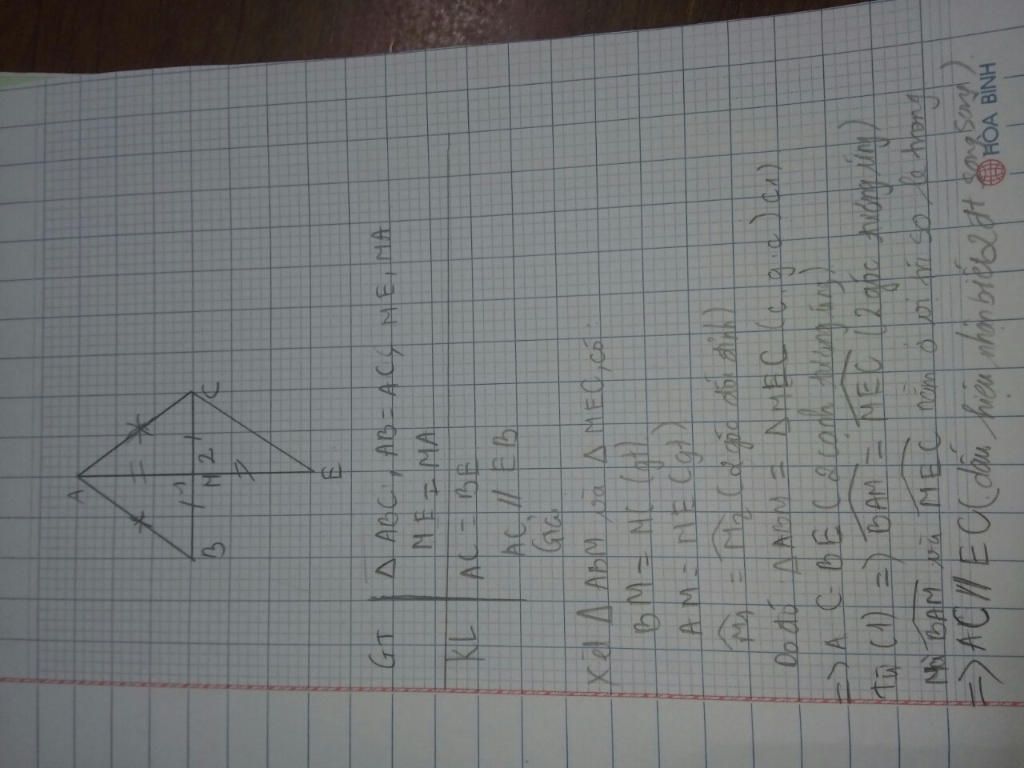 A
B 1 M 2 1 C
E
GT Δ ABC, AB = AC, ME, MA
ME = MA
KL AC = BE
AC // EB
Giải
Xét Δ ABM và Δ MEC, có
BM = MC (gt)
AM = ME (gt)
M1 = M2 (2 góc đối đỉnh)
Do đó ΔABM = ΔMEC (c.g.c) (1)
=> AC = BE (2 cạnh tương ứng)
từ (1) => BAM = MEC (2 góc tương ứng)
Mà BAM và MEC nằm ở vị trí so le trong
=> AC // EC (dấu hiệu nhận biết 2đt song song)
HOA BINH